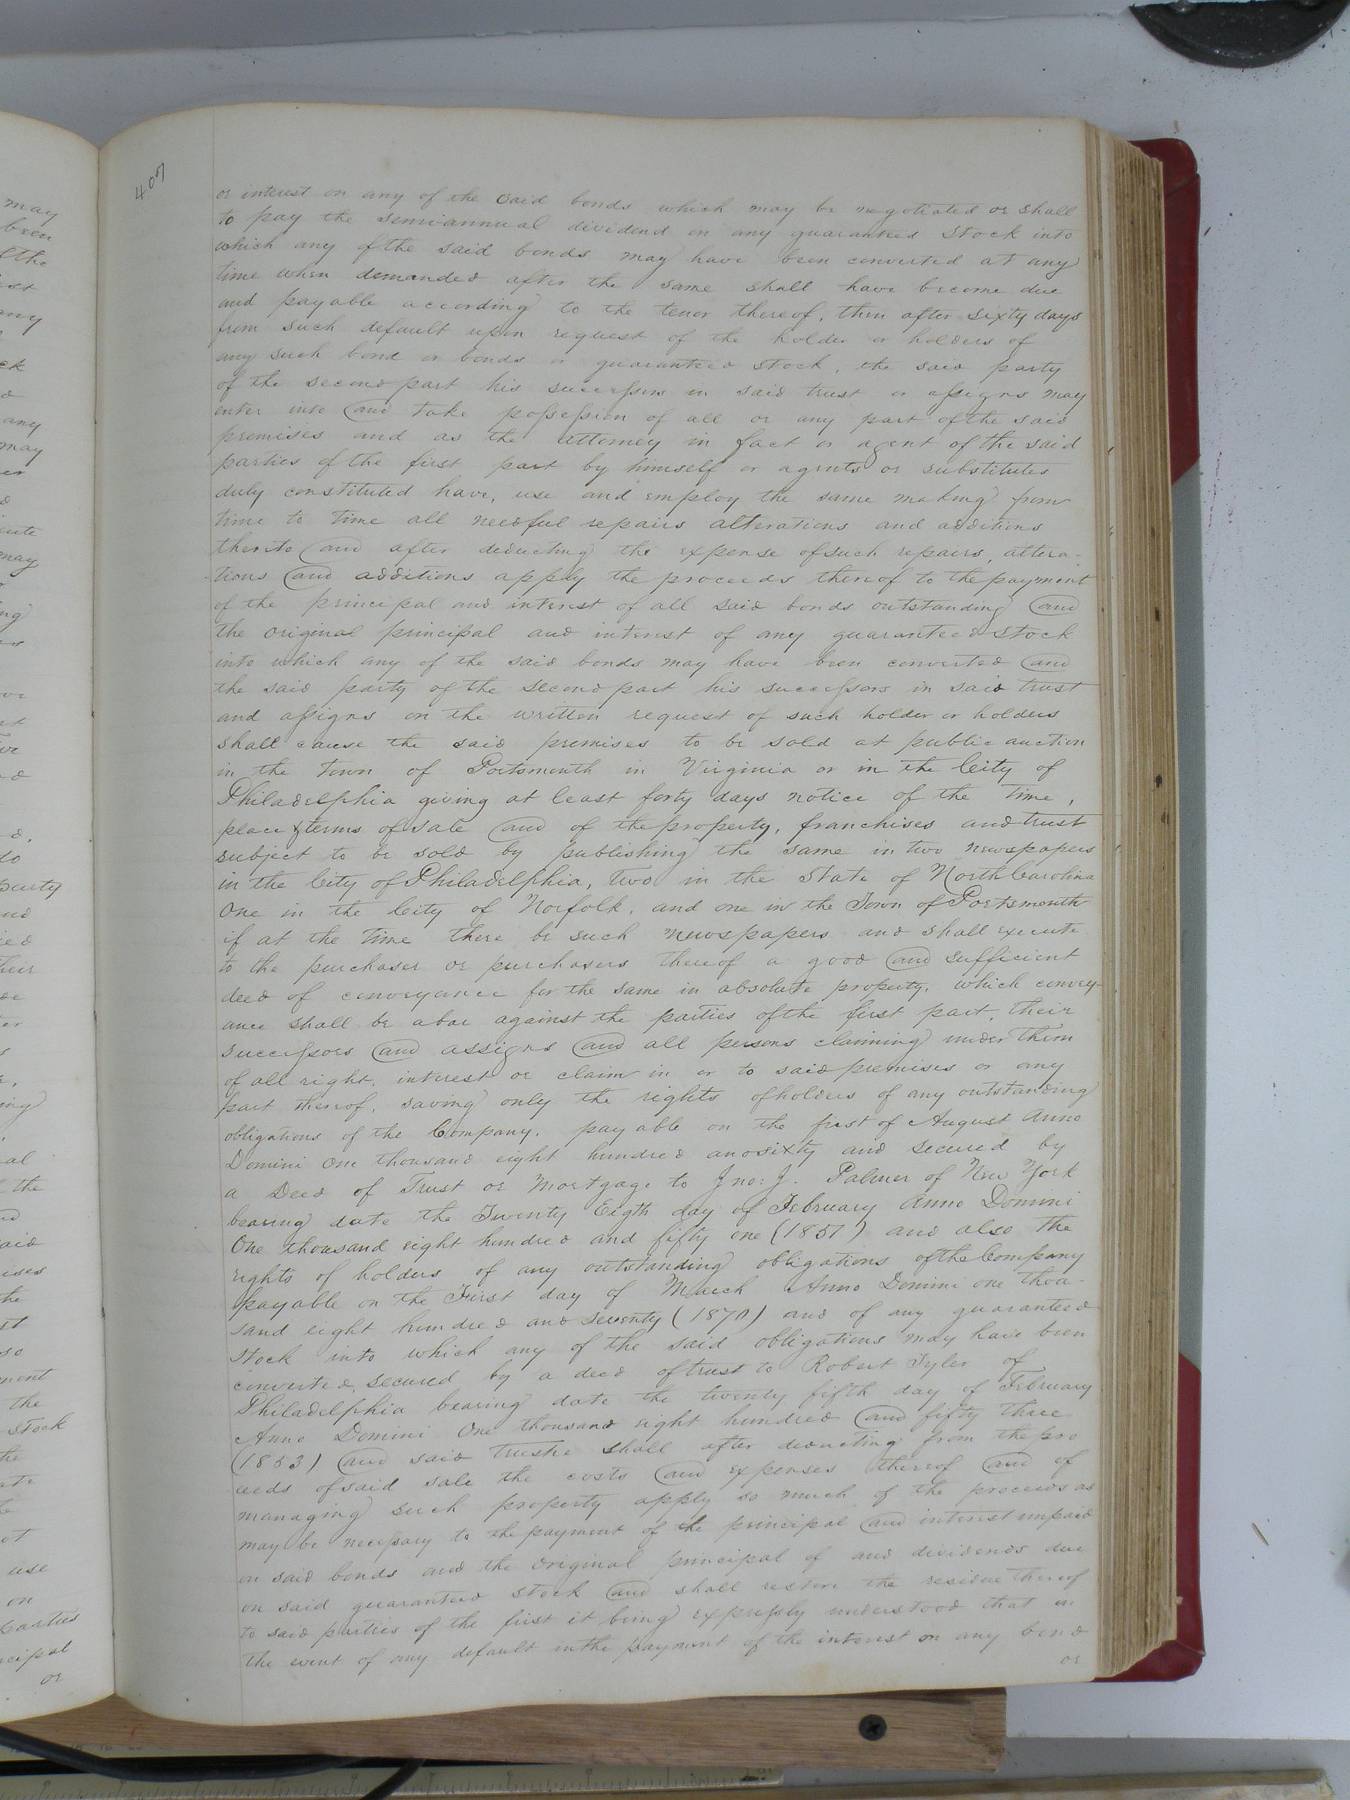 407
or interest on any of the said bonds which may be negotiated or shall
to pay the semiannual dividend on any guaranteed stock into
which any of the said bonds may have been converted at any
time when demanded after the same shall have become due
and payable according to the tenor thereof, then after sixty days
from such default upon request of the holder or holders of
any such bond or bonds or guaranteed stock, the said party
of the second part his successors in said trust or assigns may
enter into and take possession of all or any part of the said
premises and as the attorney in fact or agent of the said
parties of the first part by himself or agents or substitutes
duly constituted have, use and employ the same making from
time to time all needful repairs alterations and additions
thereto and after deducting the expense of such repairs, altera-
tions and additions apply the proceeds thereof to the payment
of the principal and interest of all said bonds outstanding and
the original principal and interest of any guaranteed stock
into which any of the said bonds may have been converted and
the said party of the second part his successors in said trust
and assigns on the written request of such holder or holders
shall cause the said premises to be sold at public auction
in the Town of Portsmouth in Virginia or in the City of
Philadelphia giving at least forty days notice of the time,
place & terms of sale and of the property, franchises and trust
subject to be sold by publishing the same in two newspapers
in the City of Philadelphia, two in the State of North Carolina
One in the City of Norfolk, and one in the Town of Portsmouth
if at the time there be such newspapers and shall execute
to the purchaser or purchasers thereof a good and sufficient
deed of conveyance for the same in absolute property, which convey-
ance shall be a bar against the parties of the first part, their
successors and assigns and all persons claiming under them
of all right, interest or claim in or to said premises or any
part thereof, saving only the rights of holders of any outstanding
obligations of the Company, payable on the first of August Anno
Domini One thousand eight hundred and sixty and secured by
a Deed of Trust or Mortgage to Jno: J. Palmer of New York
bearing date the Twenty Eigth day of February Anno Domini
One thousand eight hundred and fifty one (1851) and also the
rights of holders of any outstanding obligations of the Company
payable on the First day of March Anno Domini one thou-
sand eight hundred and seventy (1870) and of any guaranteed
stock into which any of the said obligations may have been
converted, secured by a deed of trust to Robert Tyler of
Philadelphia bearing date the twenty fifth day of February
Anno Domini One thousand eight hundred and fifty three
(1853) and said trustee shall after deducting from the pro
ceeds of said sale the costs and expenses thereof and of
managing such property apply so much of the proceeds as
may be necessary to the payment of the principal and interest unpaid
on said bonds and the original principal of and dividends due
on said guaranteed stock and shall restore the residue thereof
to said parties of the first it being expressly understood that in
the event of any default in the payment of the interest on any bond
or